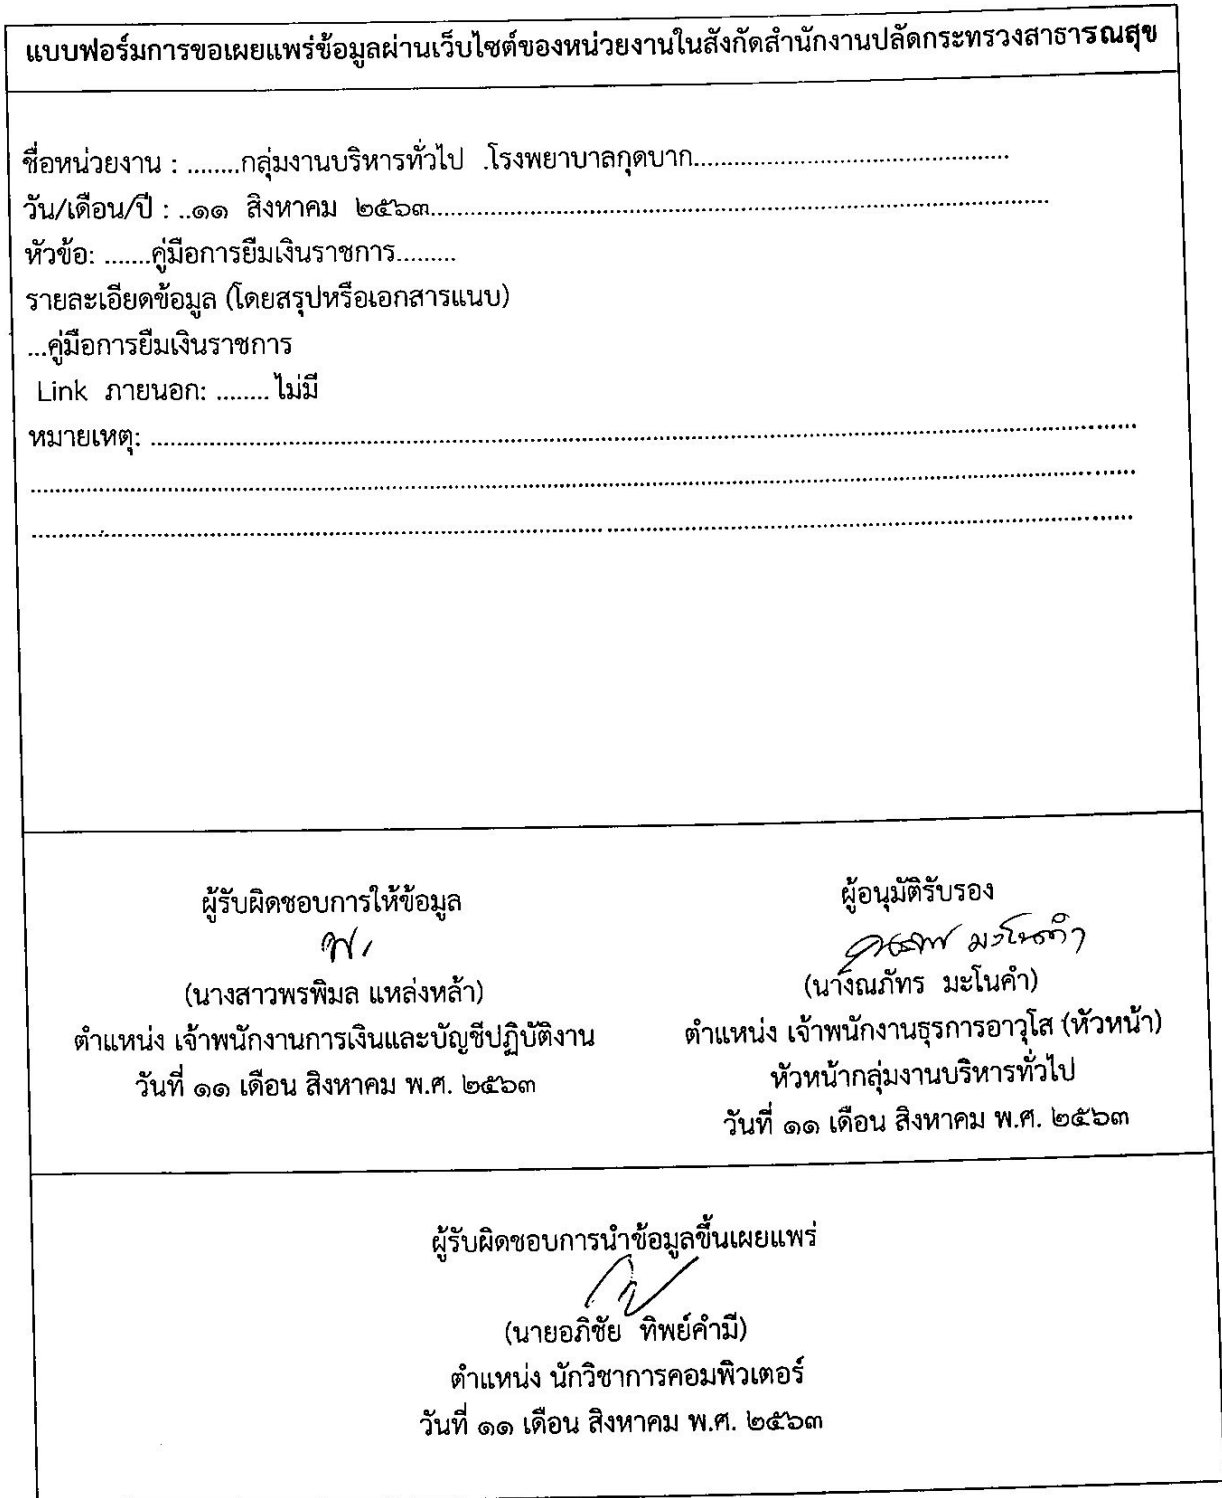 แบบฟอร์มการขอเผยแพร่ข้อมูลผ่านเว็บไซต์ของหน่วยงานในสังกัดสำนักงานปลัดกระทรวงสาธารณสุข
ชื่อหน่วยงาน : ........กลุ่มงานบริหารทั่วไป .โรงพยาบาลกุดบาก................................................
วัน/เดือน/ปี : ..๑๑ สิงหาคม ๒๕๖๓................................................................................................
หัวข้อ: .......คู่มือการยืมเงินราชการ.........
รายละเอียดข้อมูล (โดยสรุปหรือเอกสารแนบ)
...คู่มือการยืมเงินราชการ
Link ภายนอก: ........ ไม่มี
หมายเหตุ: ................................................................................................................................
................................................................................................................................................
................................................................................................................................................
ผู้รับผิดชอบการให้ข้อมูล
พ.
(นางสาวพรพิมล แหล่งหล้า)
ตำแหน่ง เจ้าพนักงานการเงินและบัญชีปฏิบัติงาน
วันที่ ๑๑ เดือน สิงหาคม พ.ศ. ๒๕๖๓
ผู้อนุมัติรับรอง
มะโนคำ
(นางณภัทร มะโนคำ)
ตำแหน่ง เจ้าพนักงานธุรการอาวุโส (หัวหน้า)
หัวหน้ากลุ่มงานบริหารทั่วไป
วันที่ ๑๑ เดือน สิงหาคม พ.ศ. ๒๕๖๓
ผู้รับผิดชอบการนำข้อมูลขึ้นเผยแพร่
(นายอภิชัย ทิพย์คำมี)
ตำแหน่ง นักวิชาการคอมพิวเตอร์
วันที่ ๑๑ เดือน สิงหาคม พ.ศ. ๒๕๖๓